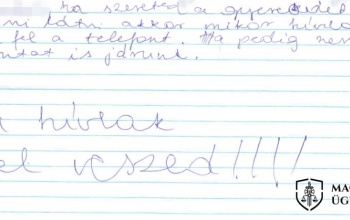 ha szereted a gyere
ni látni akkor mikor hívla
fel a telefont. Ha pedig nem
is járunk.
hívlak
el veszed!!!!
MA
ÜG